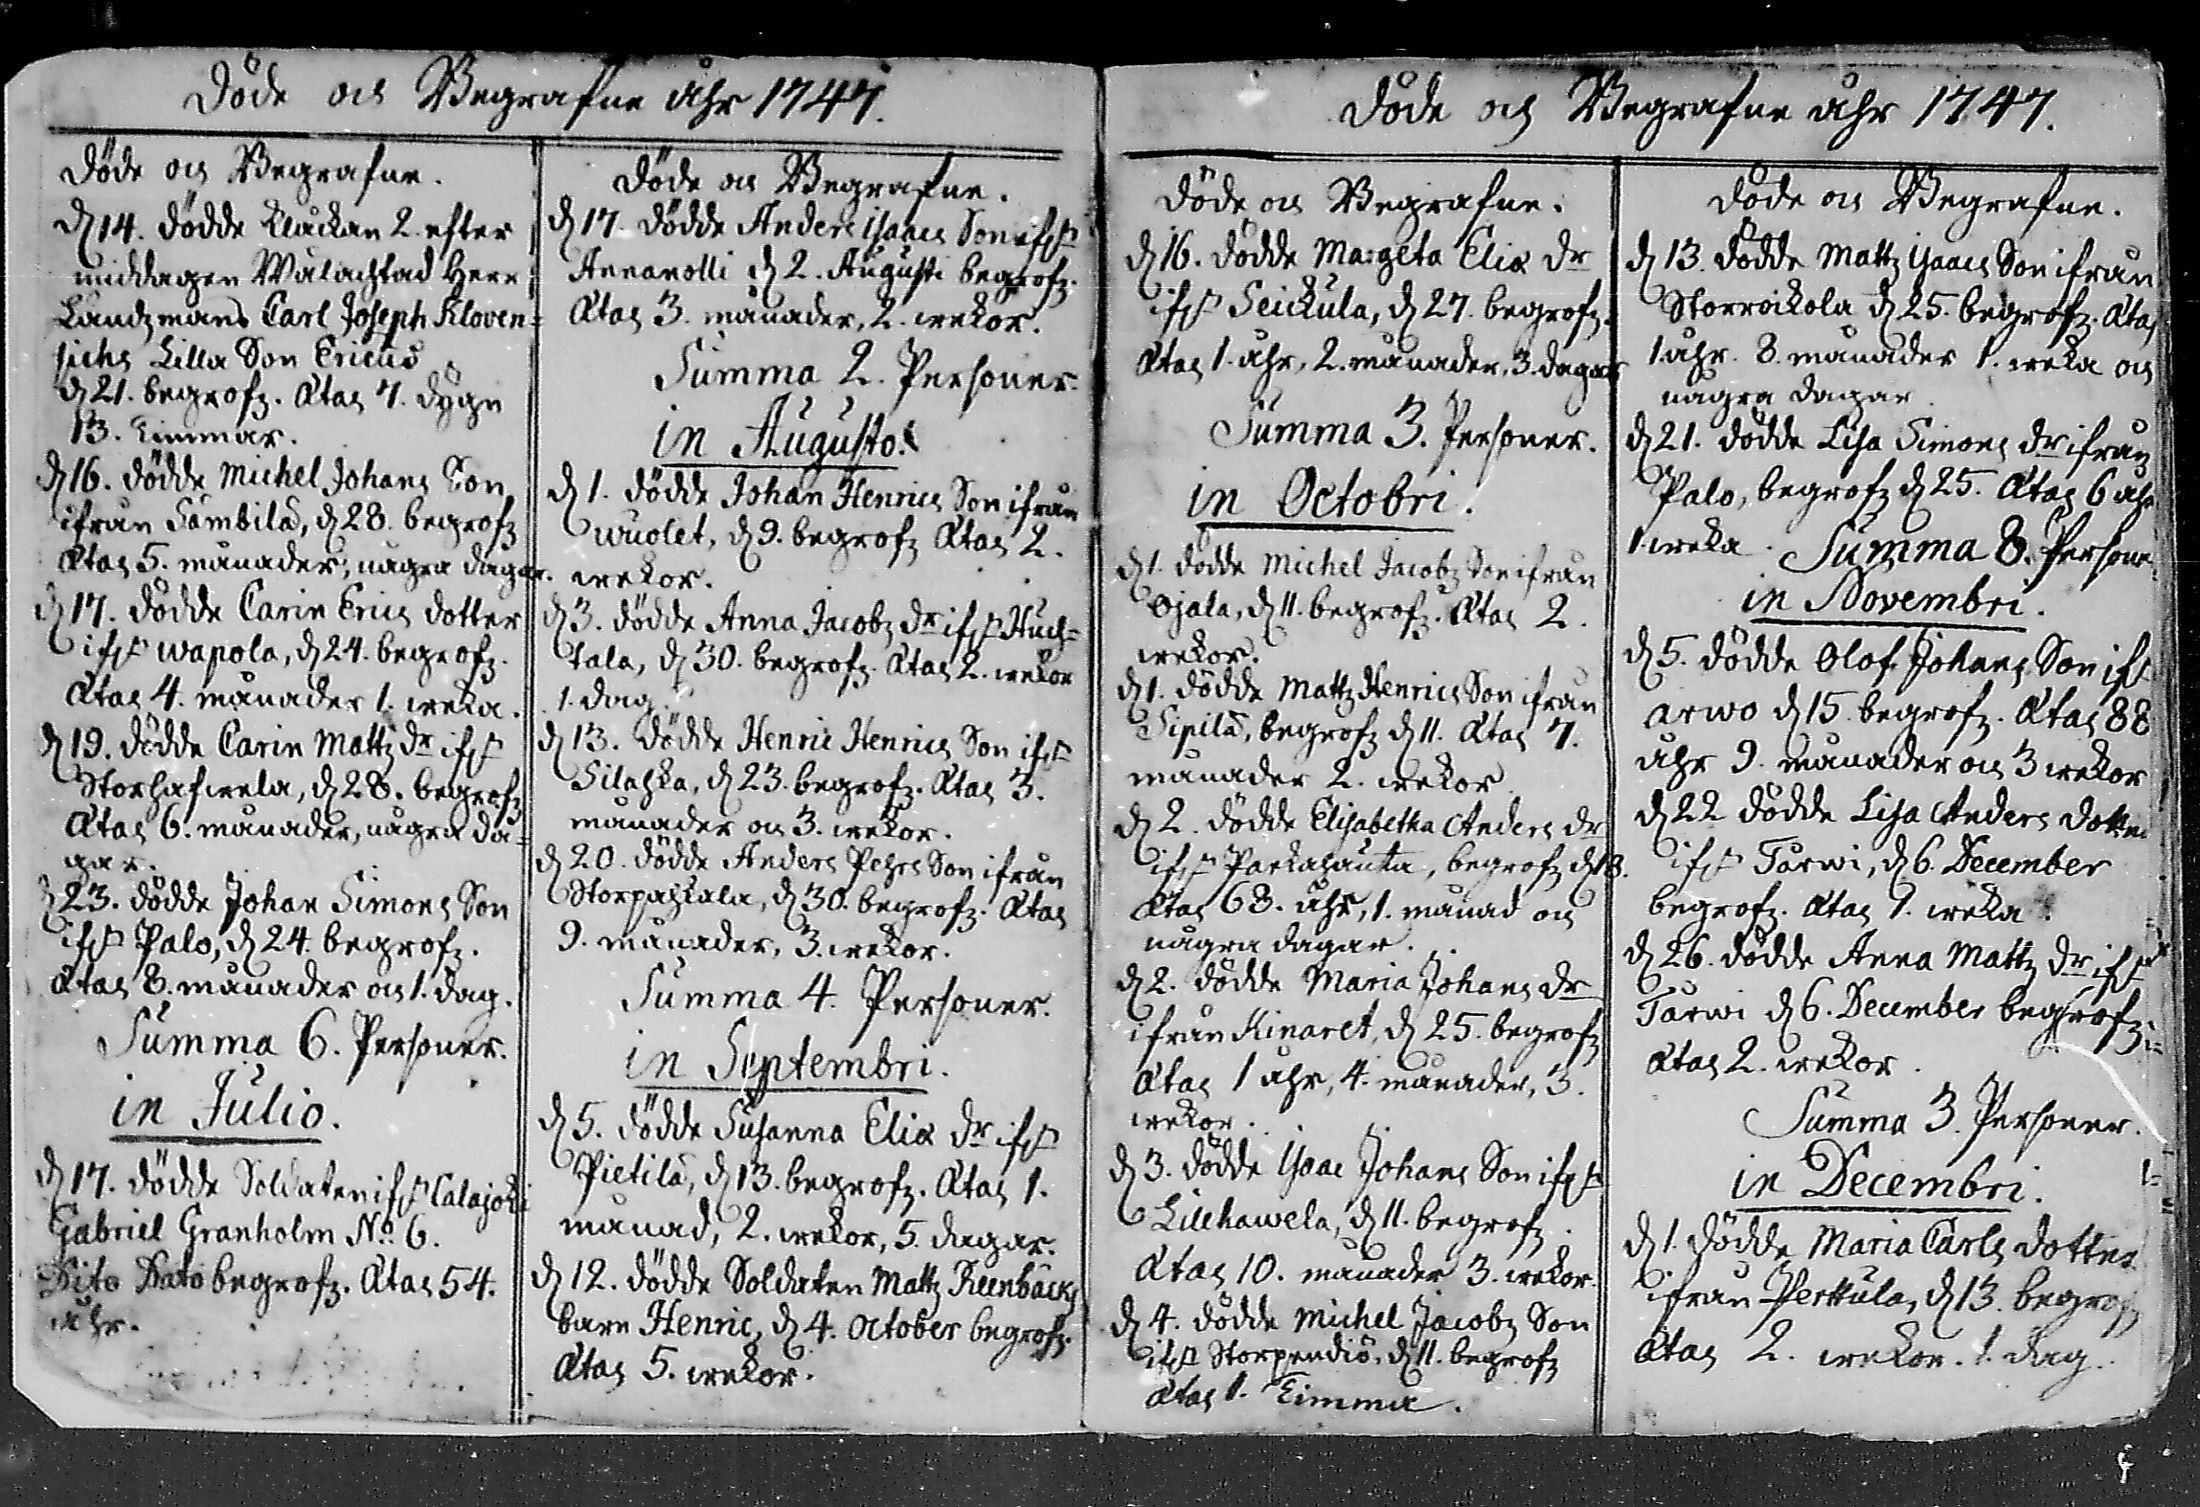 Döde och Begrafne åhr 1747.
Döde och Begrafne.
d 14. dödde Klåckan 2. efter
middagen Wälachtad Herr
Landzmans Carl Joseph Kloven=
sichs Lilla Son Ericus
d 21. begrofz. Ætas 7. dygn
13. timmar.
d 16. dödde Michel Johans Son
ifrån Sämbilä, d 28. begrofz
Ætas 5. månader, några dagar.
d 17. dödde Carin Erics dotter
ifrån Wapola, d 24. begrofz.
Ætas 4. månader 1. weka.
d 19. dödde Carin Mattz dr ifrån
Storhafwela, d 28. begrofz
Ætas 6. månader, några da=
gar.
d 23. dödde Johan Simons Son
ifrån Palo, d 24. begrofz.
Ætas 8. månader och 1. dag.
Summa 6. Personer.
in Julio.
d 17. dödde Soldaten ifrån Calajoki
Gabriel Granholm No. 6.
Dito Dato begrofz. Ætas 54.
åhr.
Döde och Begrafne.
d 17. dödde Anders Isaacs Son ifrån
Annanolli d 2. Augusti begrofz.
Ætas 3. månader, 2. wekor.
Summa 2. Personer.
in Augusto.
d 1. dödde Johan Henrics Son ifrån
Wuolet, d 9. begrofz Ætas 2.
wekor.
d 3. dödde Anna Jacobz dr ifrån Huch=
tala, d 30. begrofz. Ætas 2. wekor
1. dag.
d 13. dödde Henric Henrics Son ifrån
Silaska, d 23. begrofz. Ætas 3.
månader och 3. wekor.
d 20. dödde Anders Pehrs Son ifrån
Storpaskala, d 30. begrofz. Ætas
9. månader, 3. wekor.
Summa 4. Personer.
in Septembri.
d 5. dödde Susanna Eliæ dr ifrån
Pietilä, d 13. begrofz. Ætas 1.
månad, 2. wekor, 5. dagar.
d 12. dödde Soldaten Mattz Reenbäcks
barn Henric, d 4. October begrofz.
Ætas 5. wekor.
Döde och Begrafne åhr 1747.
Döde och Begrafne.
d 16. dödde Margeta Eliæ dr
ifrån Seickula, d 27. begrofz.
Ætas 1. åhr, 2. månader, 3. dagar
Summa 3. Personer.
in Octobri.
d 1. dödde Michel Jacobz Son ifrån
Ojala, d 11. begrofz. Ætas 2.
wekor.
d 1. dödde Mattz Henrics Son ifrån
Sipilä, begrofz d 11. Ætas 7.
månader 2. wekor
d 2. dödde Elisabetha Anders dr
ifrån Parkahauta, begrofz d 18.
Ætas 68. åhr, 1. månad och
några dagar.
d 2. dödde Maria Johans dr
ifrån Kinaret, d 25. begrofz
Ætas 1 åhr, 4. månader, 3.
wekor.
d 3. dödde Isaac Johans Son ifrån
Lillhawela, d 11. begrofz.
Ætas 10. månader 3. wekor.
d 4. dödde Michel Jacobz Son
ifrån Storpendiö, d 11. begrofz
Ætas 1. timma.
Döde och Begrafne.
d 13. dödde Mattz Isaacs Son ifrån
Storroikola d 25. begrofz. Ætas
1 åhr. 8. månader 1. weka och
några dagar.
d 21. dödde Lisa Simons dr ifrån
Palo, begrofz d 25. Ætas 6 åhr
1 weka. Summa 8. Persone
in Novembri.
d 5. dödde Olof Johans Son ifrån
Arwo d 15. begrofz. Ætas 88
åhr 9. månader och 3 wekor
d 22 dödde Lisa Anders dotter
ifrån Tårwi, d 6. December
begrofz. Ætas 1. weka.
d 26. dödde Anna Mattz dr ifrån
Tårwi d 6. December begrofz
Ætas 2. wekor.
Summa 3. Personer.
in Decembri.
d 1. dödde Maria Carls dotter
ifrån Perttula, d 13. begrofz
Ætas 2. wekor. 1. dag.